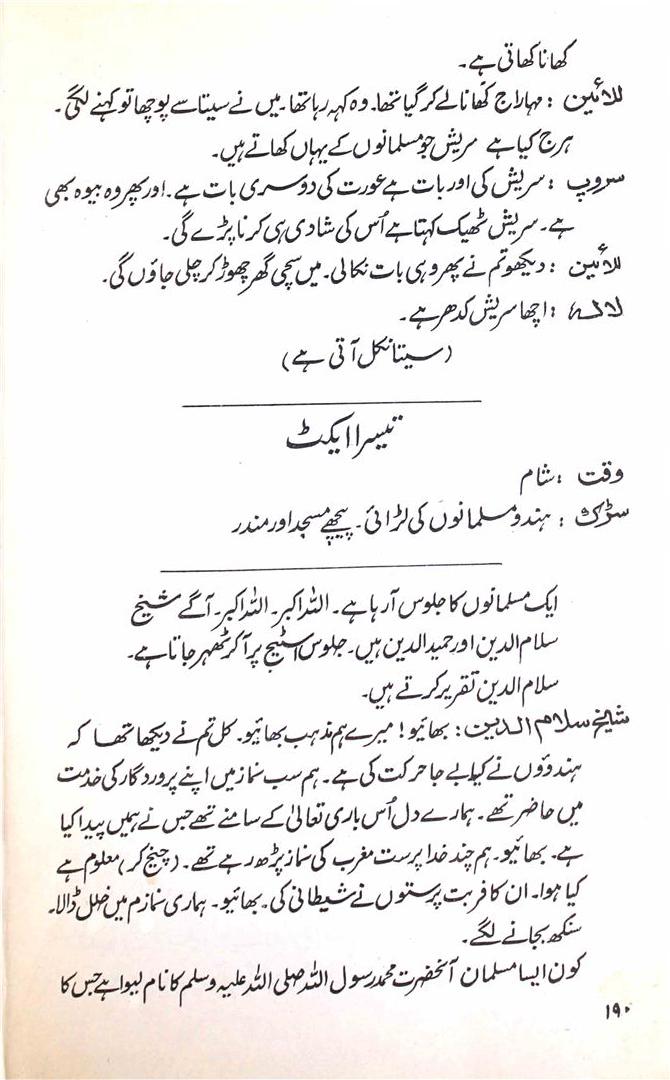 کھانا کھاتی ہے۔
للائین : مہاراج کھانا لے کر گیا تھا۔ وہ کہہ رہا تھا۔ میں نے سیتا سے پوچھا تو کہنے لگی۔
ہرج کیا ہے سریش جو مسلمانوں کے یہاں کھاتے ہیں۔
سروپ : سریش کی اور بات ہے عورت کی دوسری بات ہے۔ اور پھر وہ بیوہ بھی
ہے۔ سریش ٹھیک کہتا ہے اُس کی شادی ہی کرنا پڑے گی۔
للائین : دیکھو تم نے پھر وہی بات نکالی۔ میں سچی گھر چھوڑ کر چلی جاؤں گی۔
لالہ : اچھا سریش کدھر ہے۔
(سیتا نکل آتی ہے)
تیسرا ایکٹ
وقت : شام
سڑک : ہندو مسلمانوں کی لڑائی۔ پیچھے مسجد اور مندر
ایک مسلمانوں کا جلوس آ رہا ہے۔ اللہ اکبر۔ اللہ اکبر۔ آگے شیخ
سلام الدین اور حمید الدین ہیں۔ جلوس اسٹیج پر آ کر ٹھہر جاتا ہے۔
سلام الدین تقریر کرتے ہیں۔
شیخ سلام الدین : بھائیو! میرے ہم مذہب بھائیو۔ کل تم نے دیکھا تھا کہ
ہندوؤں نے کیا بے جا حرکت کی ہے۔ ہم سب نماز میں اپنے پروردگار کی خدمت
میں حاضر تھے۔ ہمارے دل اُس باری تعالیٰ کے سامنے تھے جس نے ہمیں پیدا کیا
ہے۔ بھائیو۔ ہم چند خدا پرست مغرب کی نماز پڑھ رہے تھے۔ (چیخ کر) معلوم ہے
کیا ہوا۔ ان کافر بت پرستوں نے شیطانی کی۔ بھائیو۔ ہماری نماز میں خلل ڈالا۔
سنکھ بجانے لگے۔
کون ایسا مسلمان آنحضرت محمد رسول اللہ صلی اللہ علیہ وسلم کا نام لیوا ہے جس کا
۱۹۰